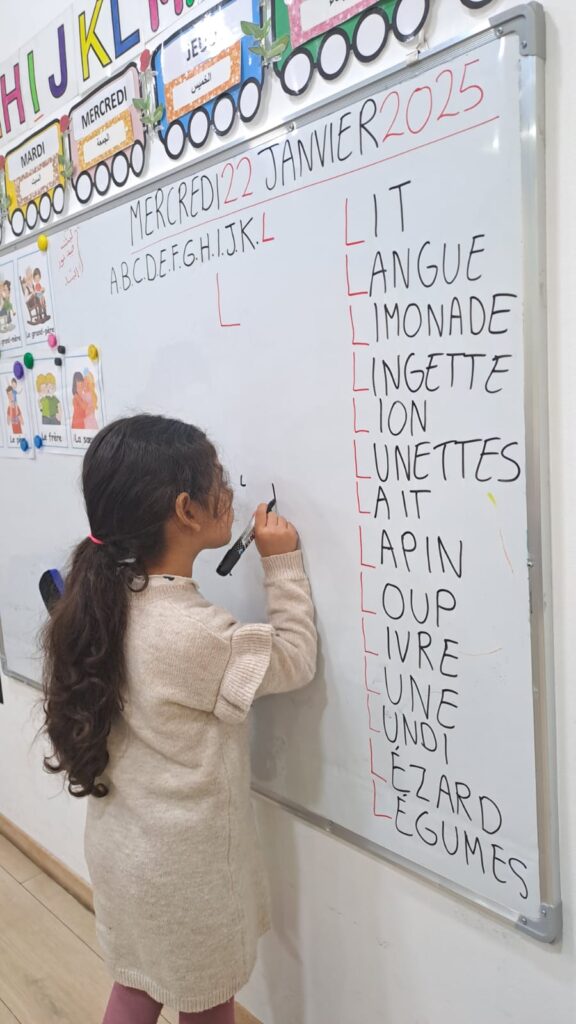 H I J K L M
JEUDI
الخميس
MERCREDI
الجمعة
MARDI
السبت
MERCREDI 22 JANVIER 2025
A.B.C.D.E.F.G.H.I.J.K.L
L
LIT
LANGUE
LIMONADE
LINGETTE
LION
LUNETTES
LAIT
LAPIN
LOUP
LIVRE
LUNE
LUNDI
LÉZARD
LÉGUMES
grand-mère
Le grand-père
Le frère
L